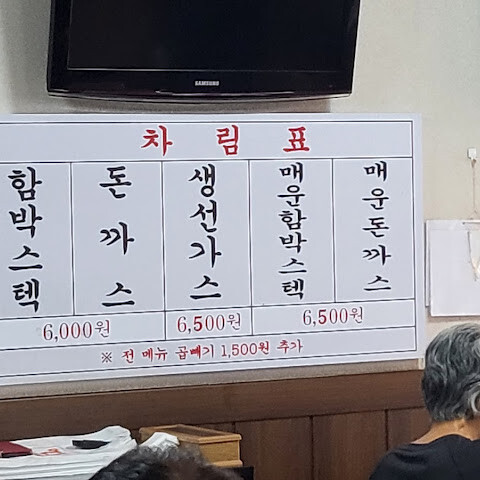 SAMSUNG
차림표
함박스텍
돈까스
생선가스
매운함박스텍
매운돈까스
6,000원
6,500원
6,500원
※ 전 메뉴 곱빼기 1,500원 추가